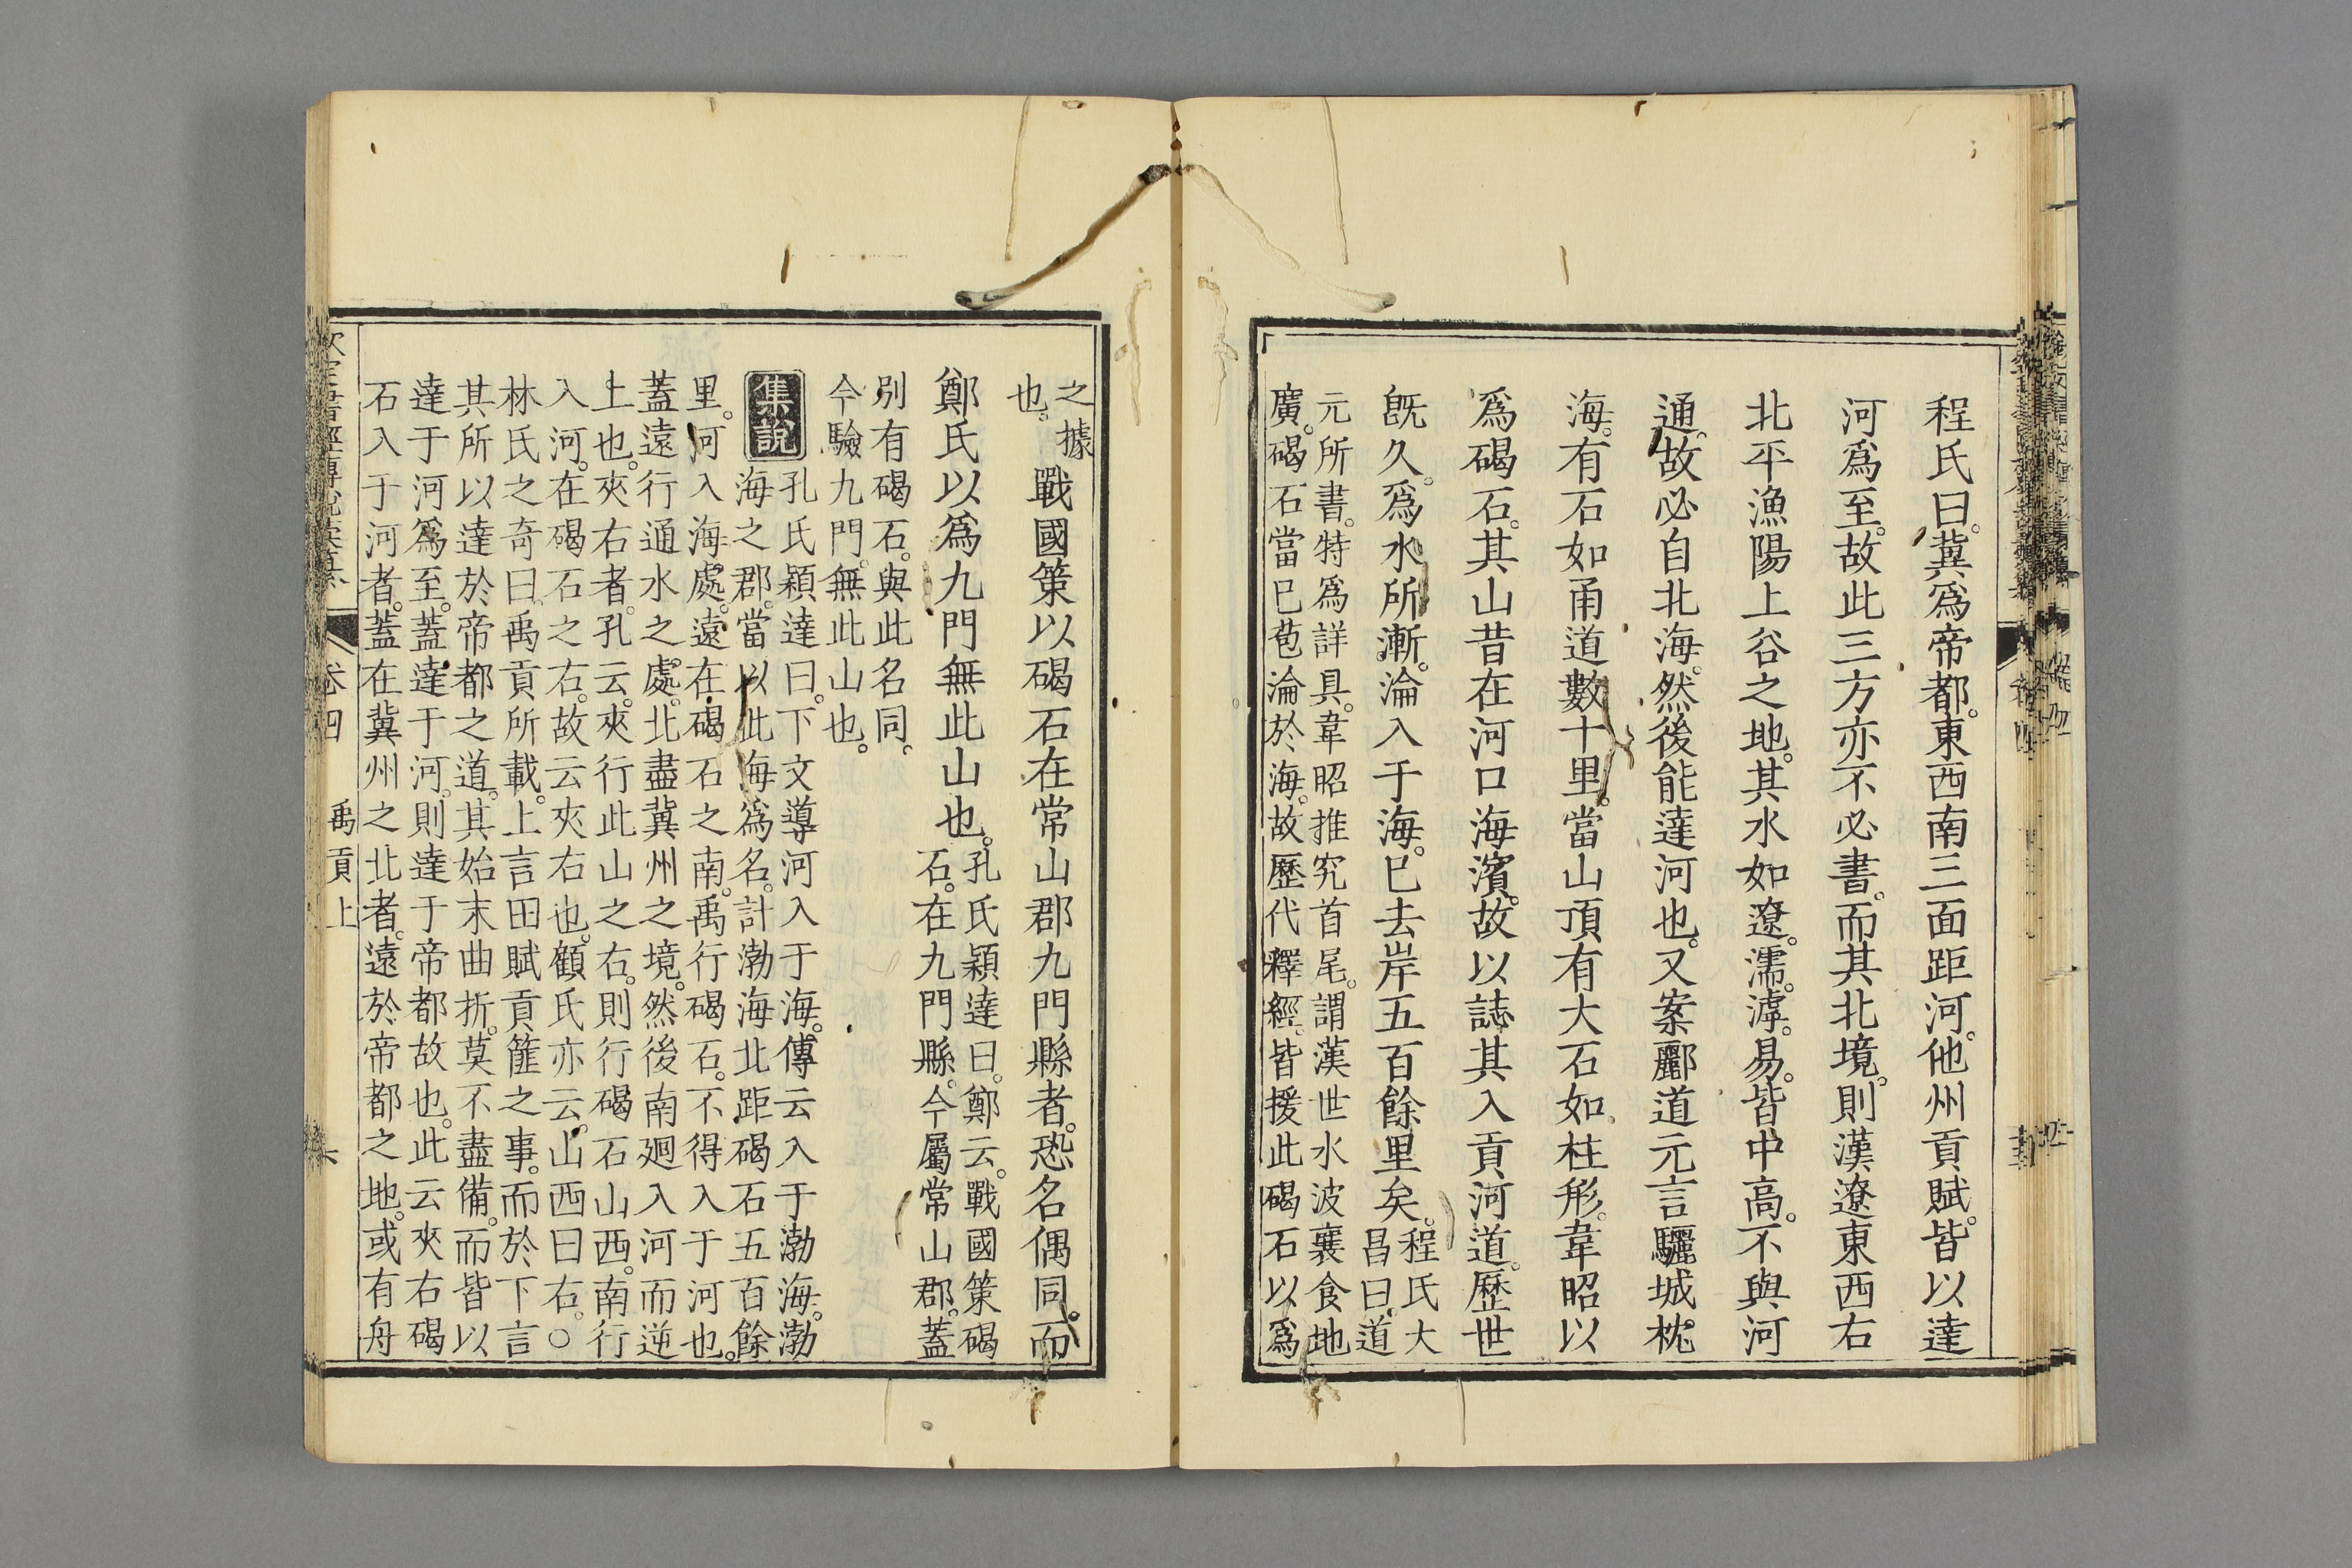 程氏曰。冀爲帝都。東西南三面距河。他州貢賦。皆以達
河爲至。故此三方亦不必書。而其北境。則漢遼東西右
北平漁陽上谷之地。其水如遼。濡。滹。易。皆中高。不與河
通。故必自北海。然後能達河也。又案酈道元言驪城枕
海。有石如甬道數十里。當山頂有大石如柱形。韋昭以
爲碣石。其山昔在河口海濱。故以誌其入貢河道。歷世
旣久。爲水所漸。淪入于海。已去岸五百餘里矣。
程氏大
昌曰。道
元所書。特爲詳具。韋昭推究首尾。謂漢世水波襄食地
廣。碣石當已苞淪於海。故歷代釋經。皆援此碣石以爲
之據
也。
戰國策以碣石在常山郡九門縣者。恐名偶同。而
鄭氏以爲九門無此山也。
孔氏穎達曰。鄭云。戰國策碣
石。在九門縣。今屬常山郡。蓋
別有碣石。與此名同。
今驗九門。無此山也。
集說
孔氏穎達曰。下文導河入于海。傳云入于渤海。渤
海之郡。當以此海爲名。計渤海北距碣石五百餘
里。河入海處。遠在碣石之南。禹行碣石。不得入于河也。
蓋遠行通水之處。北盡冀州之境。然後南廻入河而逆
土也。夾右者。孔云。夾行此山之右。則行碣石山西。南行
入河。在碣石之右。故云夾右也。顧氏亦云。山西曰右。○
林氏之奇曰。禹貢所載。上言田賦貢篚之事。而於下言
其所以達於帝都之道。其始末曲折。莫不盡備。而皆以
達于河爲至。蓋達于河。則達于帝都故也。此云夾右碣
石入于河者。蓋在冀州之北者。遠於帝都之地。或有舟
卷四
禹貢上